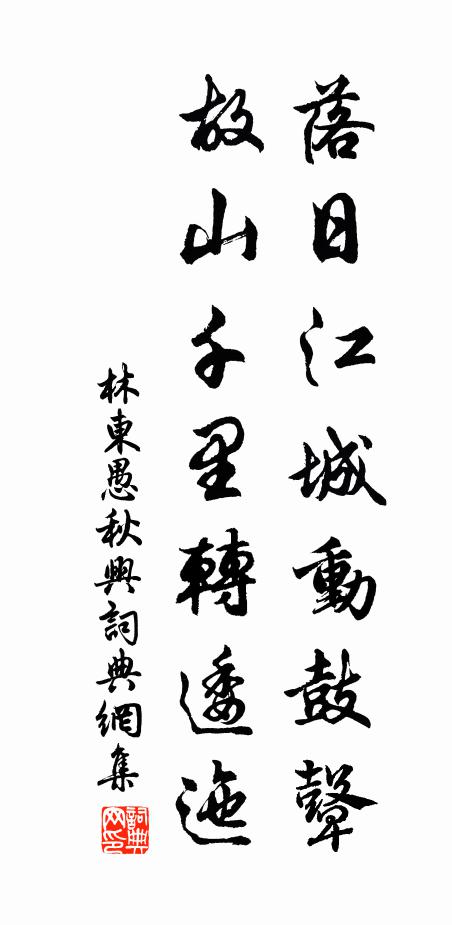 落日江城動鼓鼙
故山千里轉逶迤
林東愚秋興詞典網集
詞典
网印